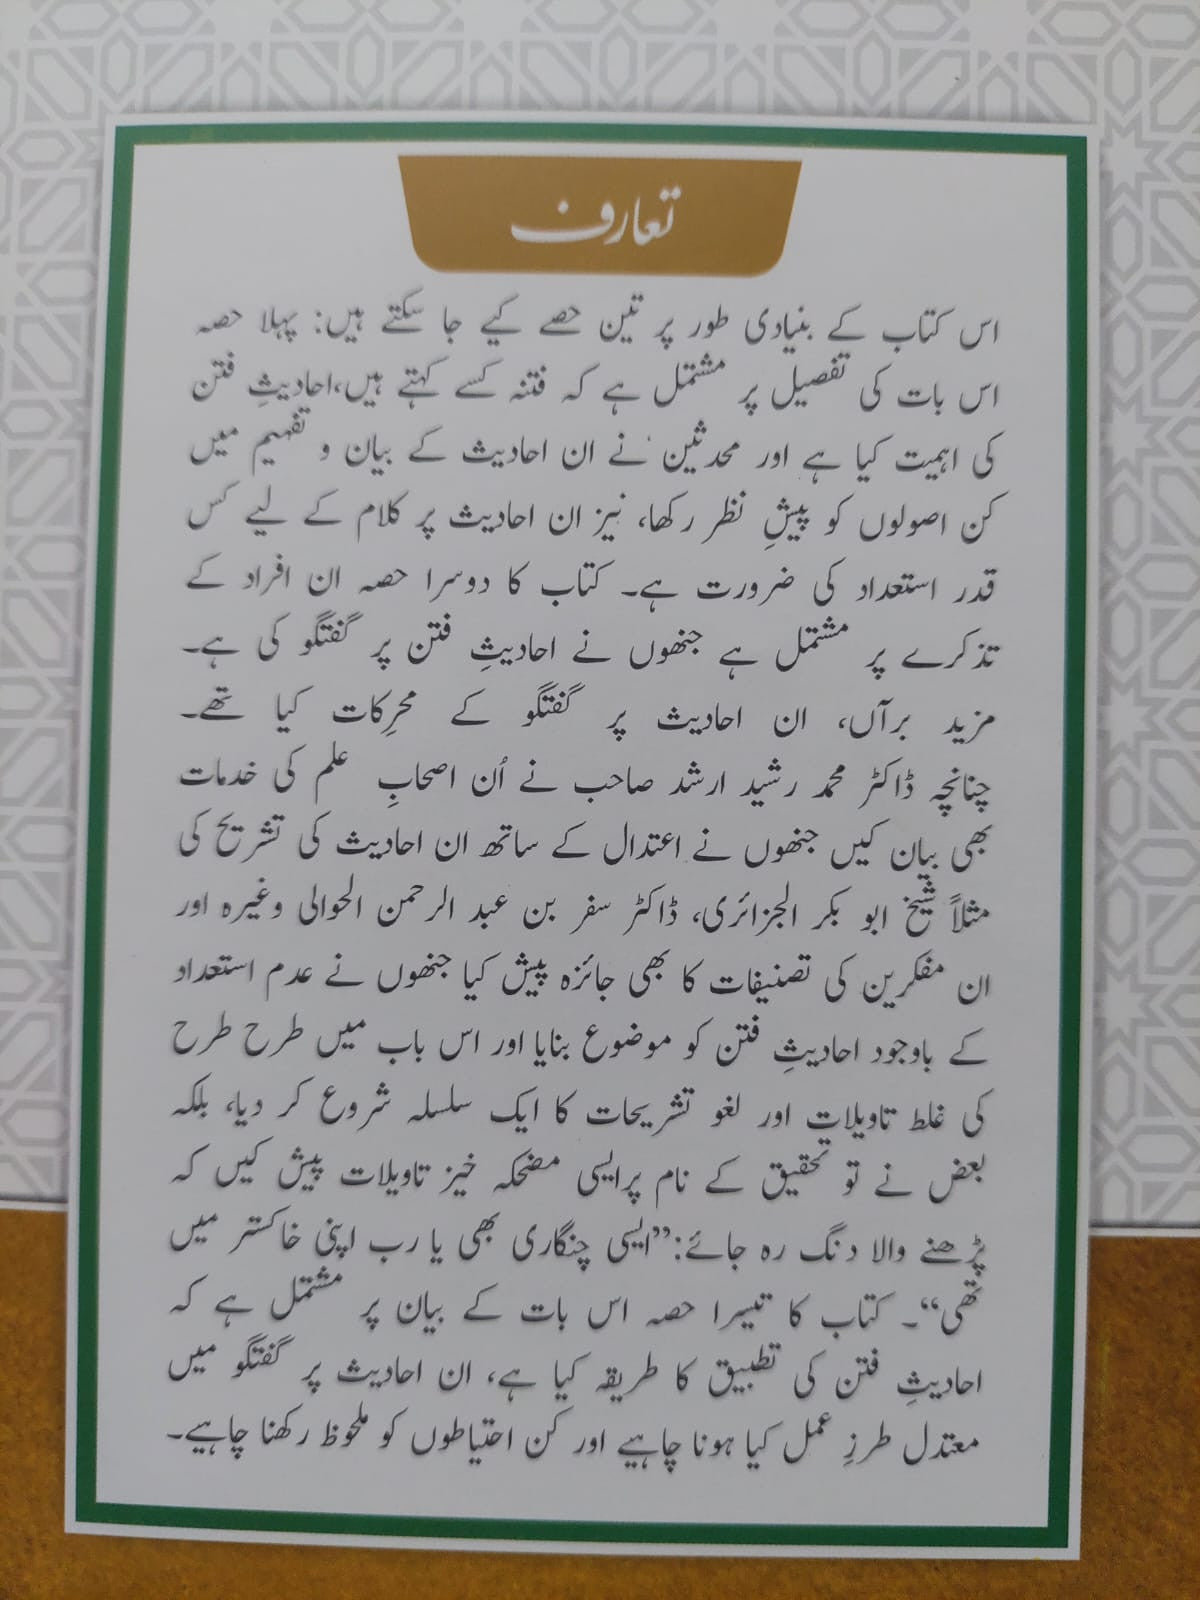 تعارف
اس کتاب کے بنیادی طور پر تین حصے کیے جا سکتے ہیں: پہلا حصہ
اس بات کی تفصیل پر مشتمل ہے کہ فتنہ کسے کہتے ہیں،احادیثِ فتن
کی اہمیت کیا ہے اور محدثین نے ان احادیث کے بیان و تفہیم میں
کن اصولوں کو پیشِ نظر رکھا، نیز ان احادیث پر کلام کے لیے کس
قدر استعداد کی ضرورت ہے۔ کتاب کا دوسرا حصہ ان افراد کے
تذکرے پر مشتمل ہے جنھوں نے احادیثِ فتن پر گفتگو کی ہے۔
مزید برآں، ان احادیث پر گفتگو کے محرِکات کیا تھے۔
چنانچہ ڈاکٹر محمد رشید ارشد صاحب نے اُن اصحابِ علم کی خدمات
بھی بیان کیں جنھوں نے اعتدال کے ساتھ ان احادیث کی تشریح کی
مثلاً شیخ ابو بکر الجزائری، ڈاکٹر سفر بن عبد الرحمن الحوالی وغیرہ اور
ان مفکرین کی تصنیفات کا بھی جائزہ پیش کیا جنھوں نے عدم استعداد
کے باوجود احادیثِ فتن کو موضوع بنایا اور اس باب میں طرح طرح
کی غلط تاویلات اور لغو تشریحات کا ایک سلسلہ شروع کر دیا، بلکہ
بعض نے تو تحقیق کے نام پرایسی مضحکہ خیز تاویلات پیش کیں کہ
پڑھنے والا دنگ رہ جائے:”ایسی چنگاری بھی یا رب اپنی خاکستر میں
تھی“۔ کتاب کا تیسرا حصہ اس بات کے بیان پر مشتمل ہے کہ
احادیثِ فتن کی تطبیق کا طریقہ کیا ہے، ان احادیث پر گفتگو میں
معتدل طرزِ عمل کیا ہونا چاہیے اور کن احتیاطوں کو ملحوظ رکھنا چاہیے۔